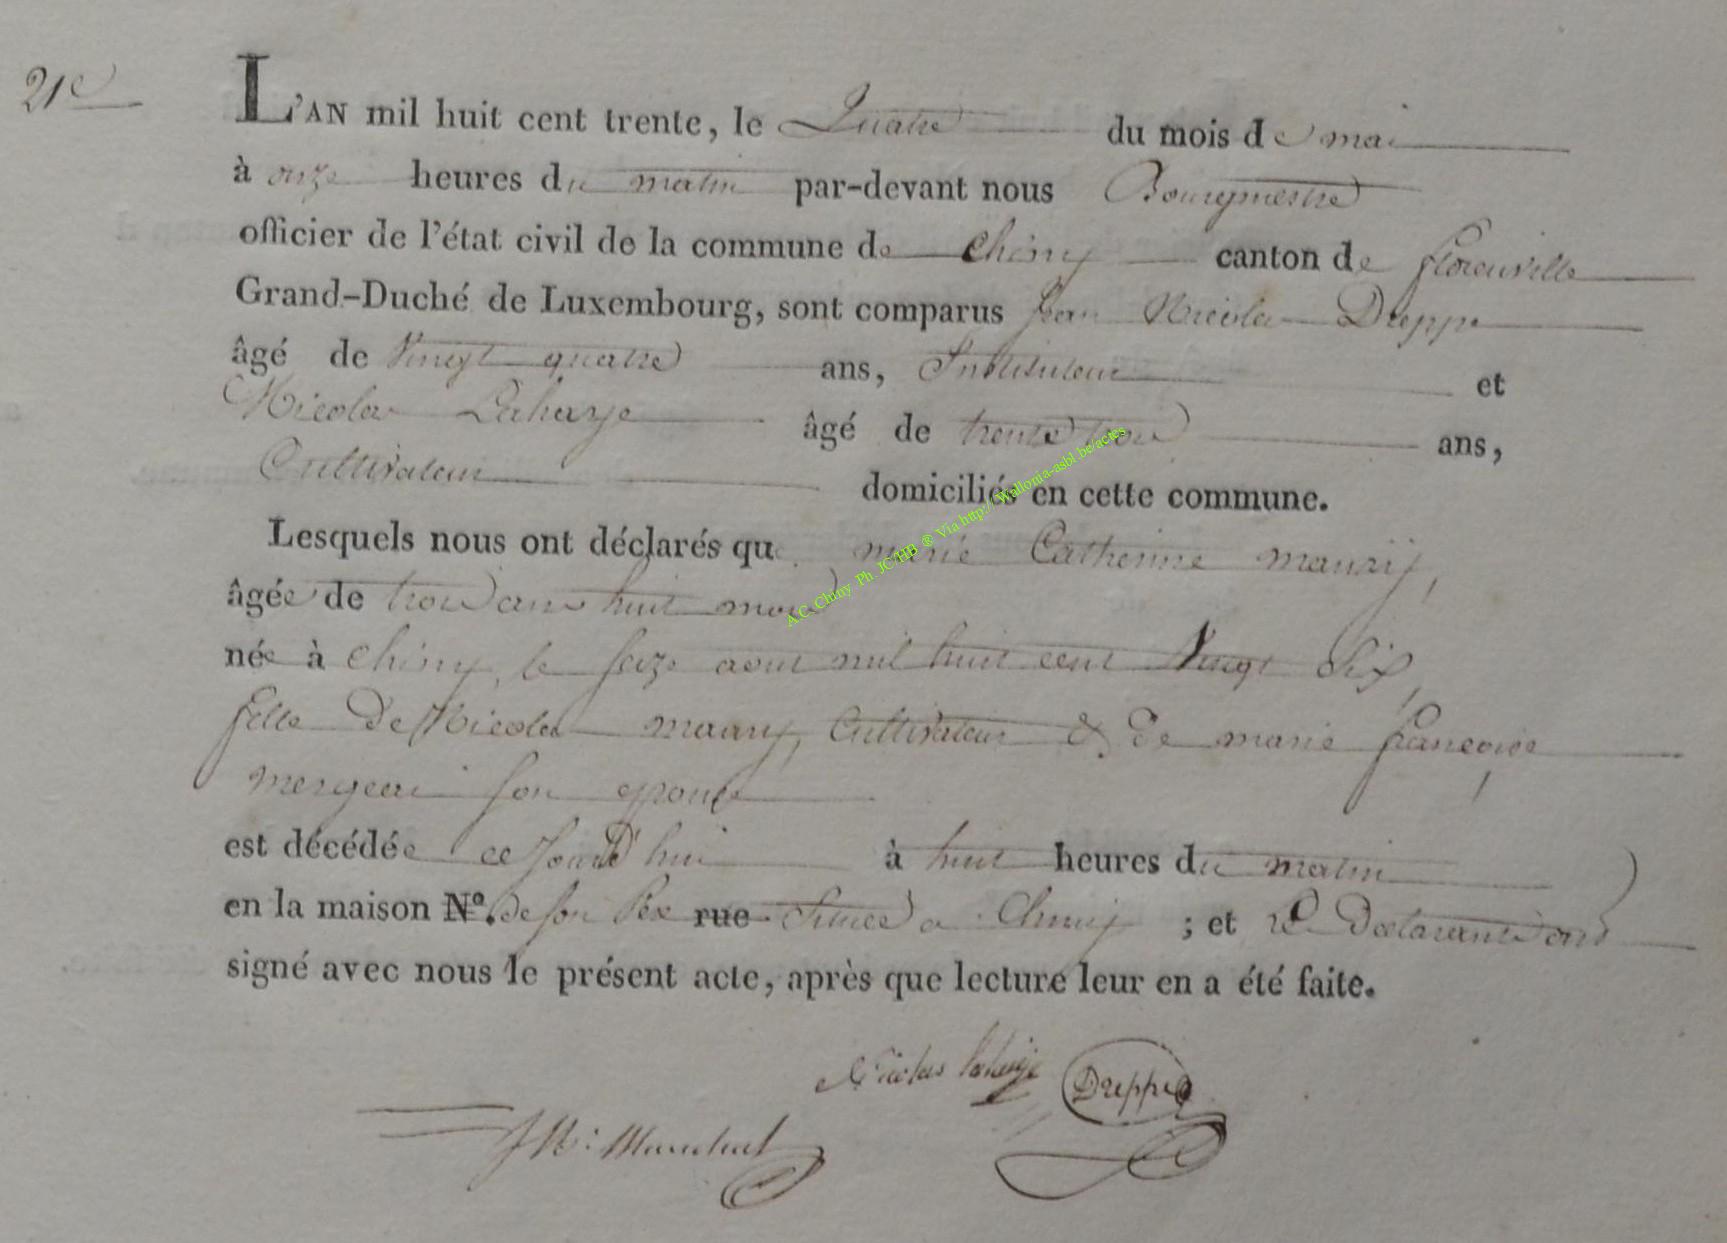 21e
L'AN mil huit cent trente, le Quatre du mois de mai
à onze heures du matin par-devant nous Bourgmestre
officier de l'état civil de la commune de Chiny canton de florenville
Grand-Duché de Luxembourg, sont comparus Jean Nicolas Dreppe
âgé de Vingt quatre ans, Instituteur et
Nicolas Lahaye âgé de trente trois ans,
Cultivateur domiciliés en cette commune.
Lesquels nous ont déclarés que marie Catherine maury,
âgée de trois ans huit mois
née à Chiny, le seize aout mil huit cent Vingt Six,
fille de Nicolas maury, Cultivateur & de marie françoise
mergeai son epouse
est décédée ce Jourd'hui à huit heures du matin
en la maison N°. de son Père rue Située a Chiny ; et les Déclarants ont
signé avec nous le présent acte, après que lecture leur en a été faite.
Nicolas lahaye Dreppe
JN: Marechal
A.C. Chiny Ph. JC/HB ® Via http://Wallonia-asbl.be/actes